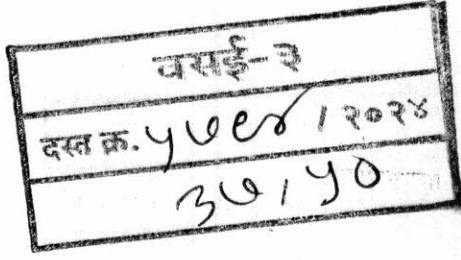 वसई-३
दस्त क्र. ५७९४ / २०२४
३७/५०